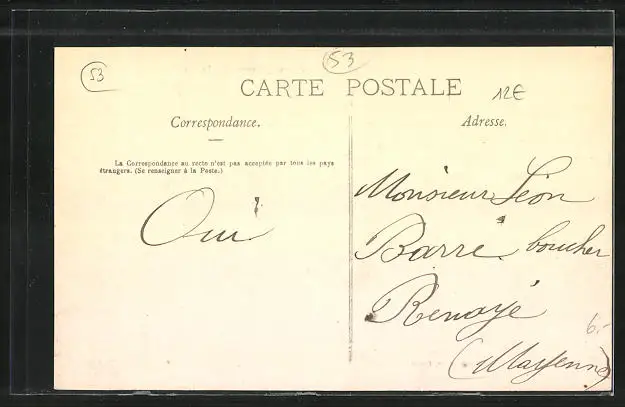 53
53
CARTE POSTALE
12€
Correspondance.
Adresse.
La Correspondance au recto n'est pas acceptée par tous les pays
étrangers. (Se renseigner à la Poste.)
Oui
Monsieur Léon
Barré boucher
Renazé
(Mayenne)
6.-